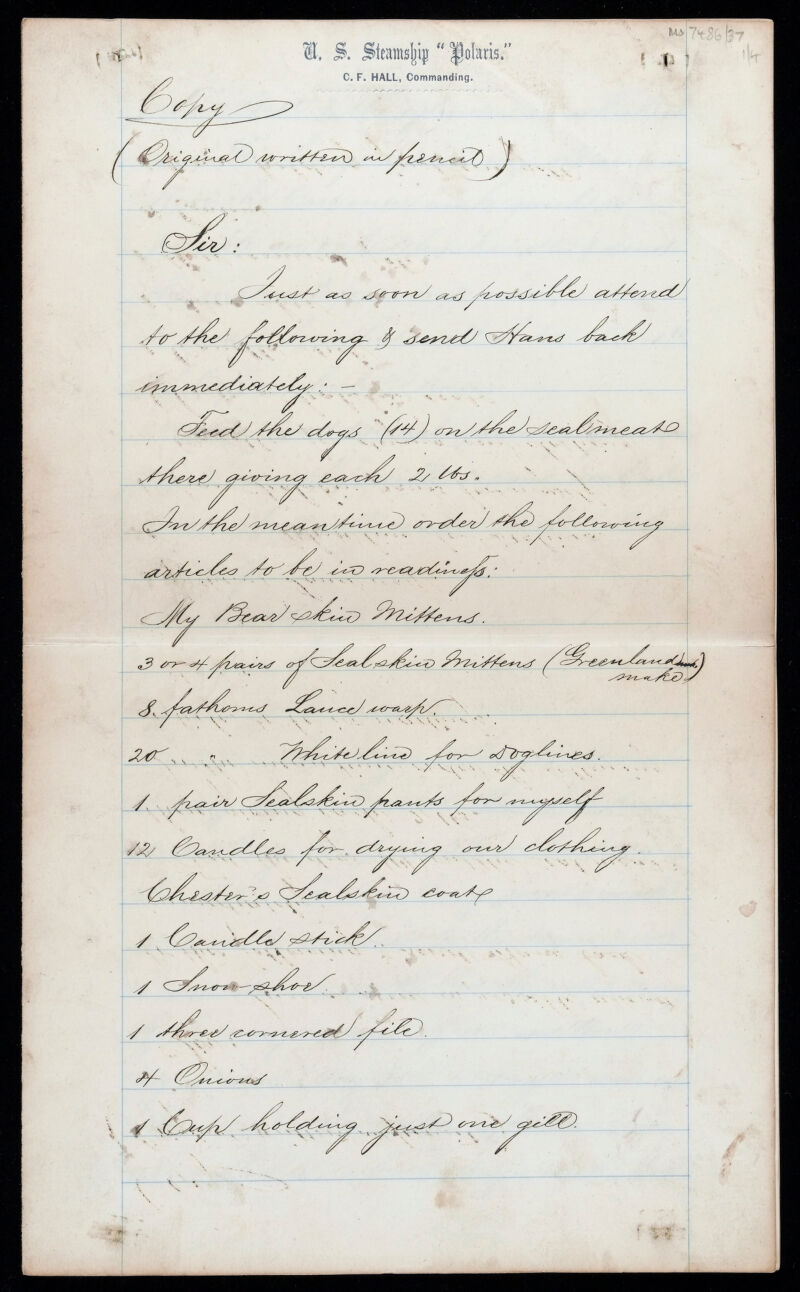 MS 7486/37
1/4
U. S. Steamship "Polaris."
C. F. HALL, Commanding.
Copy
(Original written in pencil)
Sir:
Just as soon as possible attend
to the following & send Hans back
immediately: —
Feed the dogs (14) on the seal meat
there giving each 2 lbs.
In the mean time order the following
articles to be in readiness:
My Bear skin Mittens.
3 or 4 pairs of Seal skin Mittens (Greenland
make)
8. fathoms Lance warp.
20 " White line for Doglines.
1 pair Sealskin pants for myself
12 Candles for drying our clothing.
Chester's Sealskin coat
1 Candle stick.
1 Snow-shoe.
1 three cornered file.
4 Onions
1 Cup holding just one gill.